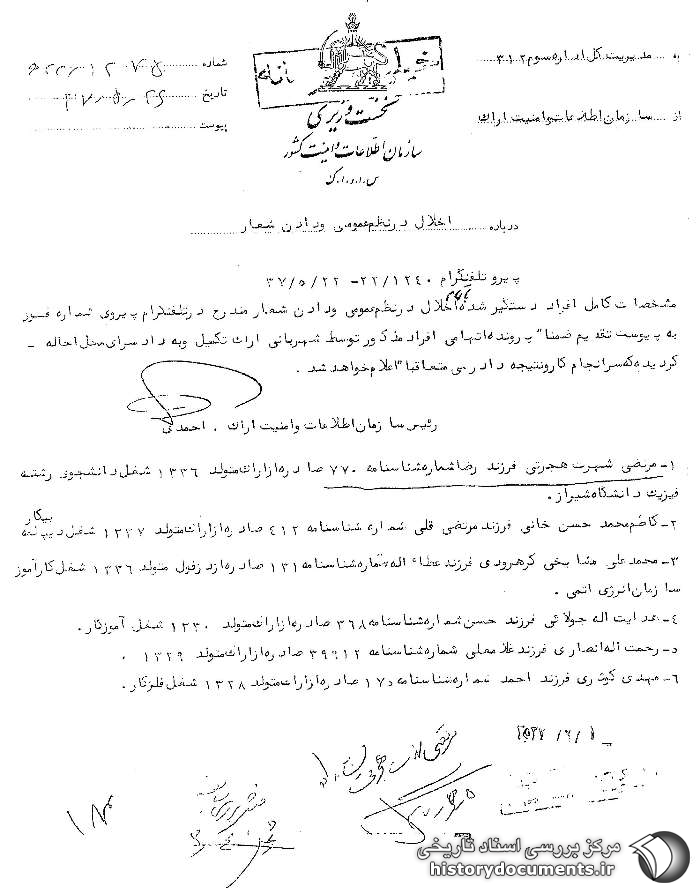 به مدیریت کل اداره سوم ۳۱۲
از سازمان اطلاعات و امنیت اراک
خیلی
نخست وزیری
سازمان اطلاعات و امنیت کشور
س.ا.و.ا.ک
شماره
تاریخ
پیوست
درباره اخلال در نظم عمومی ودادن شعار
پیرو تلفنگرام ۲۲/۱۲۴۰ -۳۷/۵/۲۲
مشخصات کامل افراد دستگیر شده اخلال در نظم عمومی ودادن شعار مندرج در تلفنگرام پیروی شماره فوق
به پیوست تقدیم ضمنا" پرونده اتهامی افراد مذکور توسط شهربانی اراک تکمیل وبه دادسرای محل احاله -
گردیده که سرانجام کار ونتیجه دادرسی متعاقبا" اعلام خواهد شد .
رئیس سازمان اطلاعات وامنیت اراک . احمدی
۱- مرتضی شهرت هجرتی فرزند رضا شماره شناسنامه ۷۷۰ صادره از اراک متولد ۱۳۳۶ شغل دانشجوی رشته
فیزیک دانشگاه شیراز .
۲- کاظم محمد حسن خانی فرزند مرتضی قلی شماره شناسنامه ۴۱۲ صادره از اراک متولد ۱۳۳۷ شغل دیپلمه بیکار
۳- محمد علی مشایخی کرهرودی فرزند عطاء اله شماره شناسنامه ۱۳۱ صادره از دزفول متولد ۱۳۳۶ شغل کارآموز
سازمان انرژی اتمی .
۴- هدایت اله جولائی فرزند حسن شماره شناسنامه ۳۶۸ صادره از اراک متولد ۱۳۳۰ شغل آموزگار .
۵- رحمت اله انصاری فرزند غلامعلی شماره شناسنامه ۳۹۹۱۲ صادره از اراک متولد ۱۳۲۹ .
۶- مهدی کوثری فرزند احمد شماره شناسنامه ۱۷۵ صادره از اراک متولد ۱۳۲۸ شغل فلزکار .
مرکز بررسی اسناد تاریخی
historydocuments.ir